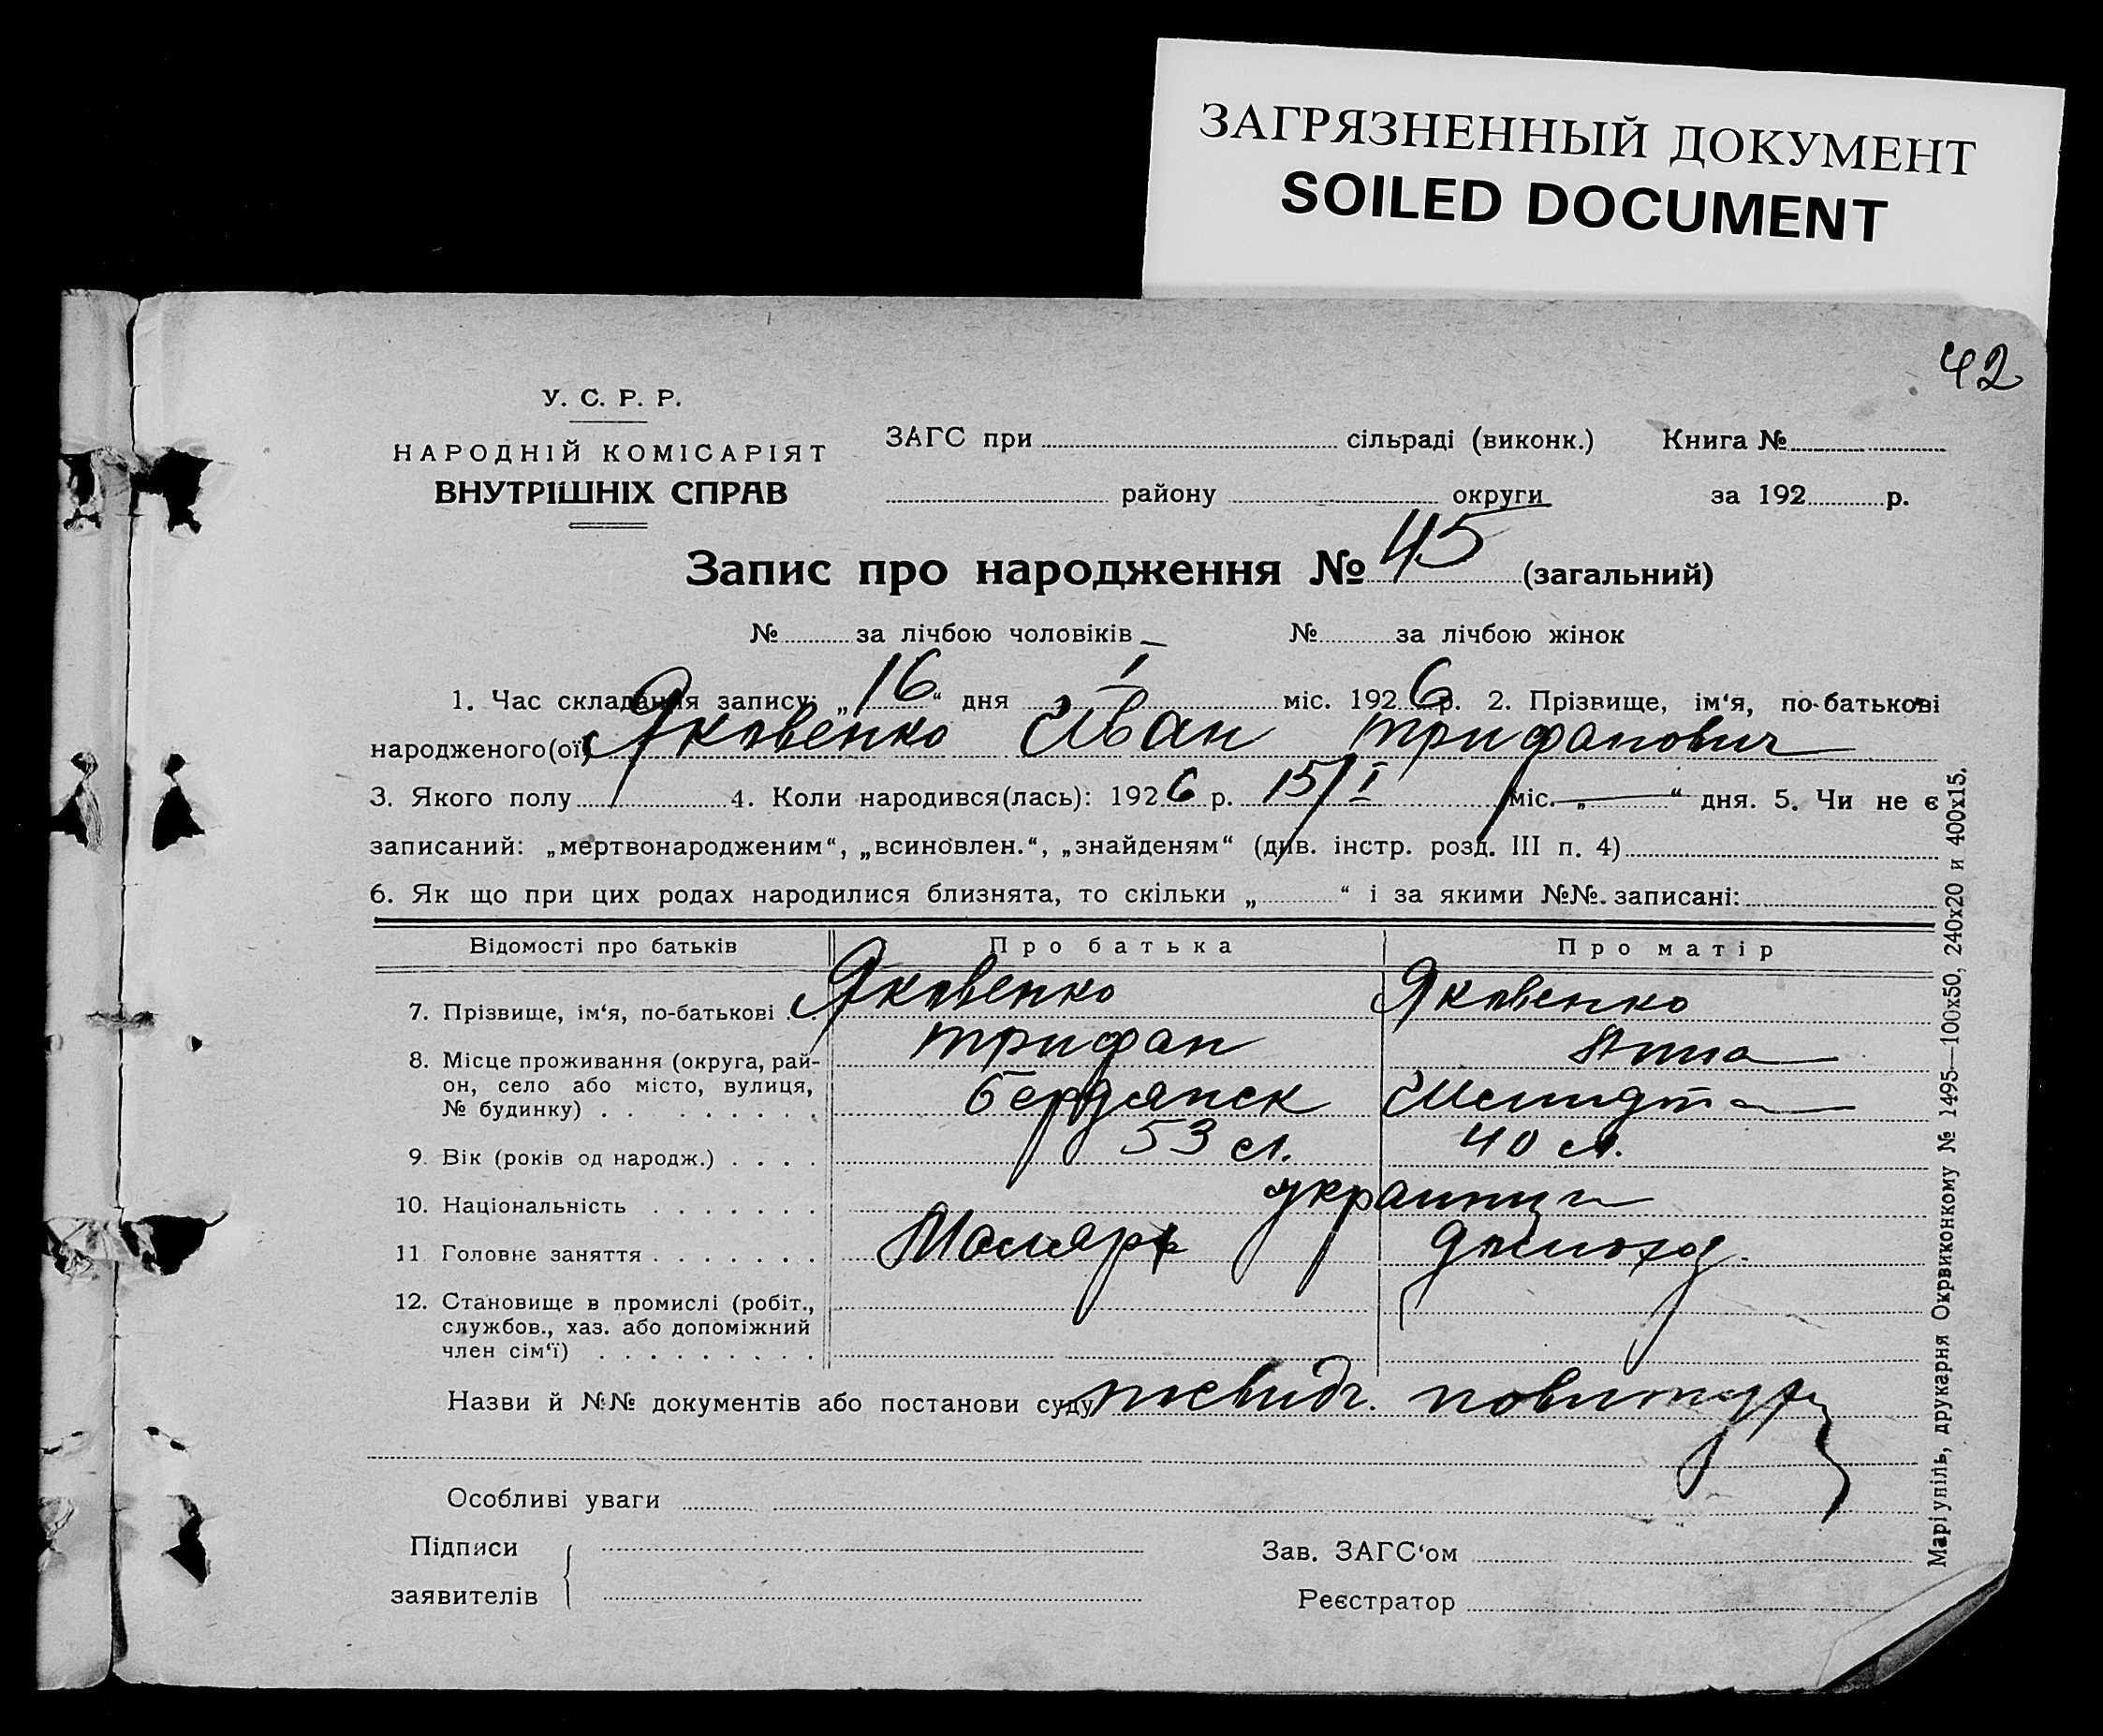 ЗАГРЯЗНЕННЫЙ ДОКУМЕНТ
SOILED DOCUMENT
42
У. С. Р. Р.
НАРОДНІЙ КОМІСАРІЯТ
ВНУТРІШНІХ СПРАВ
ЗАГС при сільраді (виконк.) Книга №
району округи за 192 р.
Запис про народження № 45 (загальний)
№ за лічбою чоловіків № за лічбою жінок
1. Час складання запису: „16“ дня I міс. 1926 р. 2. Прізвище, ім‘я, по-батькові
народженого(ої) Яковенко Иван Трифанович
3. Якого полу 4. Коли народився(лась): 1926 р. 15/I міс. „ “ дня. 5. Чи не є
записаний: „мертвонародженим“, „всиновлен.“, „знайденям“ (див. інстр. розд. III п. 4)
6. Як що при цих родах народилися близнята, то скільки „ “ і за якими №№. записані:
Відомості про батьків Про батька Про матір
7. Прізвище, ім‘я, по-батькові Яковенко Яковенко
Трифан Анна
8. Місце проживання (округа, рай-
он, село або місто, вулиця,
№ будинку) Бердянск Шмидта
9. Вік (років од народж.) 53 л. 40 л.
10. Національність украинци
11. Головне заняття Маляр домохоз.
12. Становище в промислі (робіт.,
службов., хаз. або допоміжний
член сім‘ї)
Назви й №№ документів або постанови суду
Особливі уваги
Підписи
заявителів
Зав. ЗАГС‘ом
Реєстратор
Маріупіль, друкарня Окрвиконкому № 1495—100x50, 240x20 и 400x15.